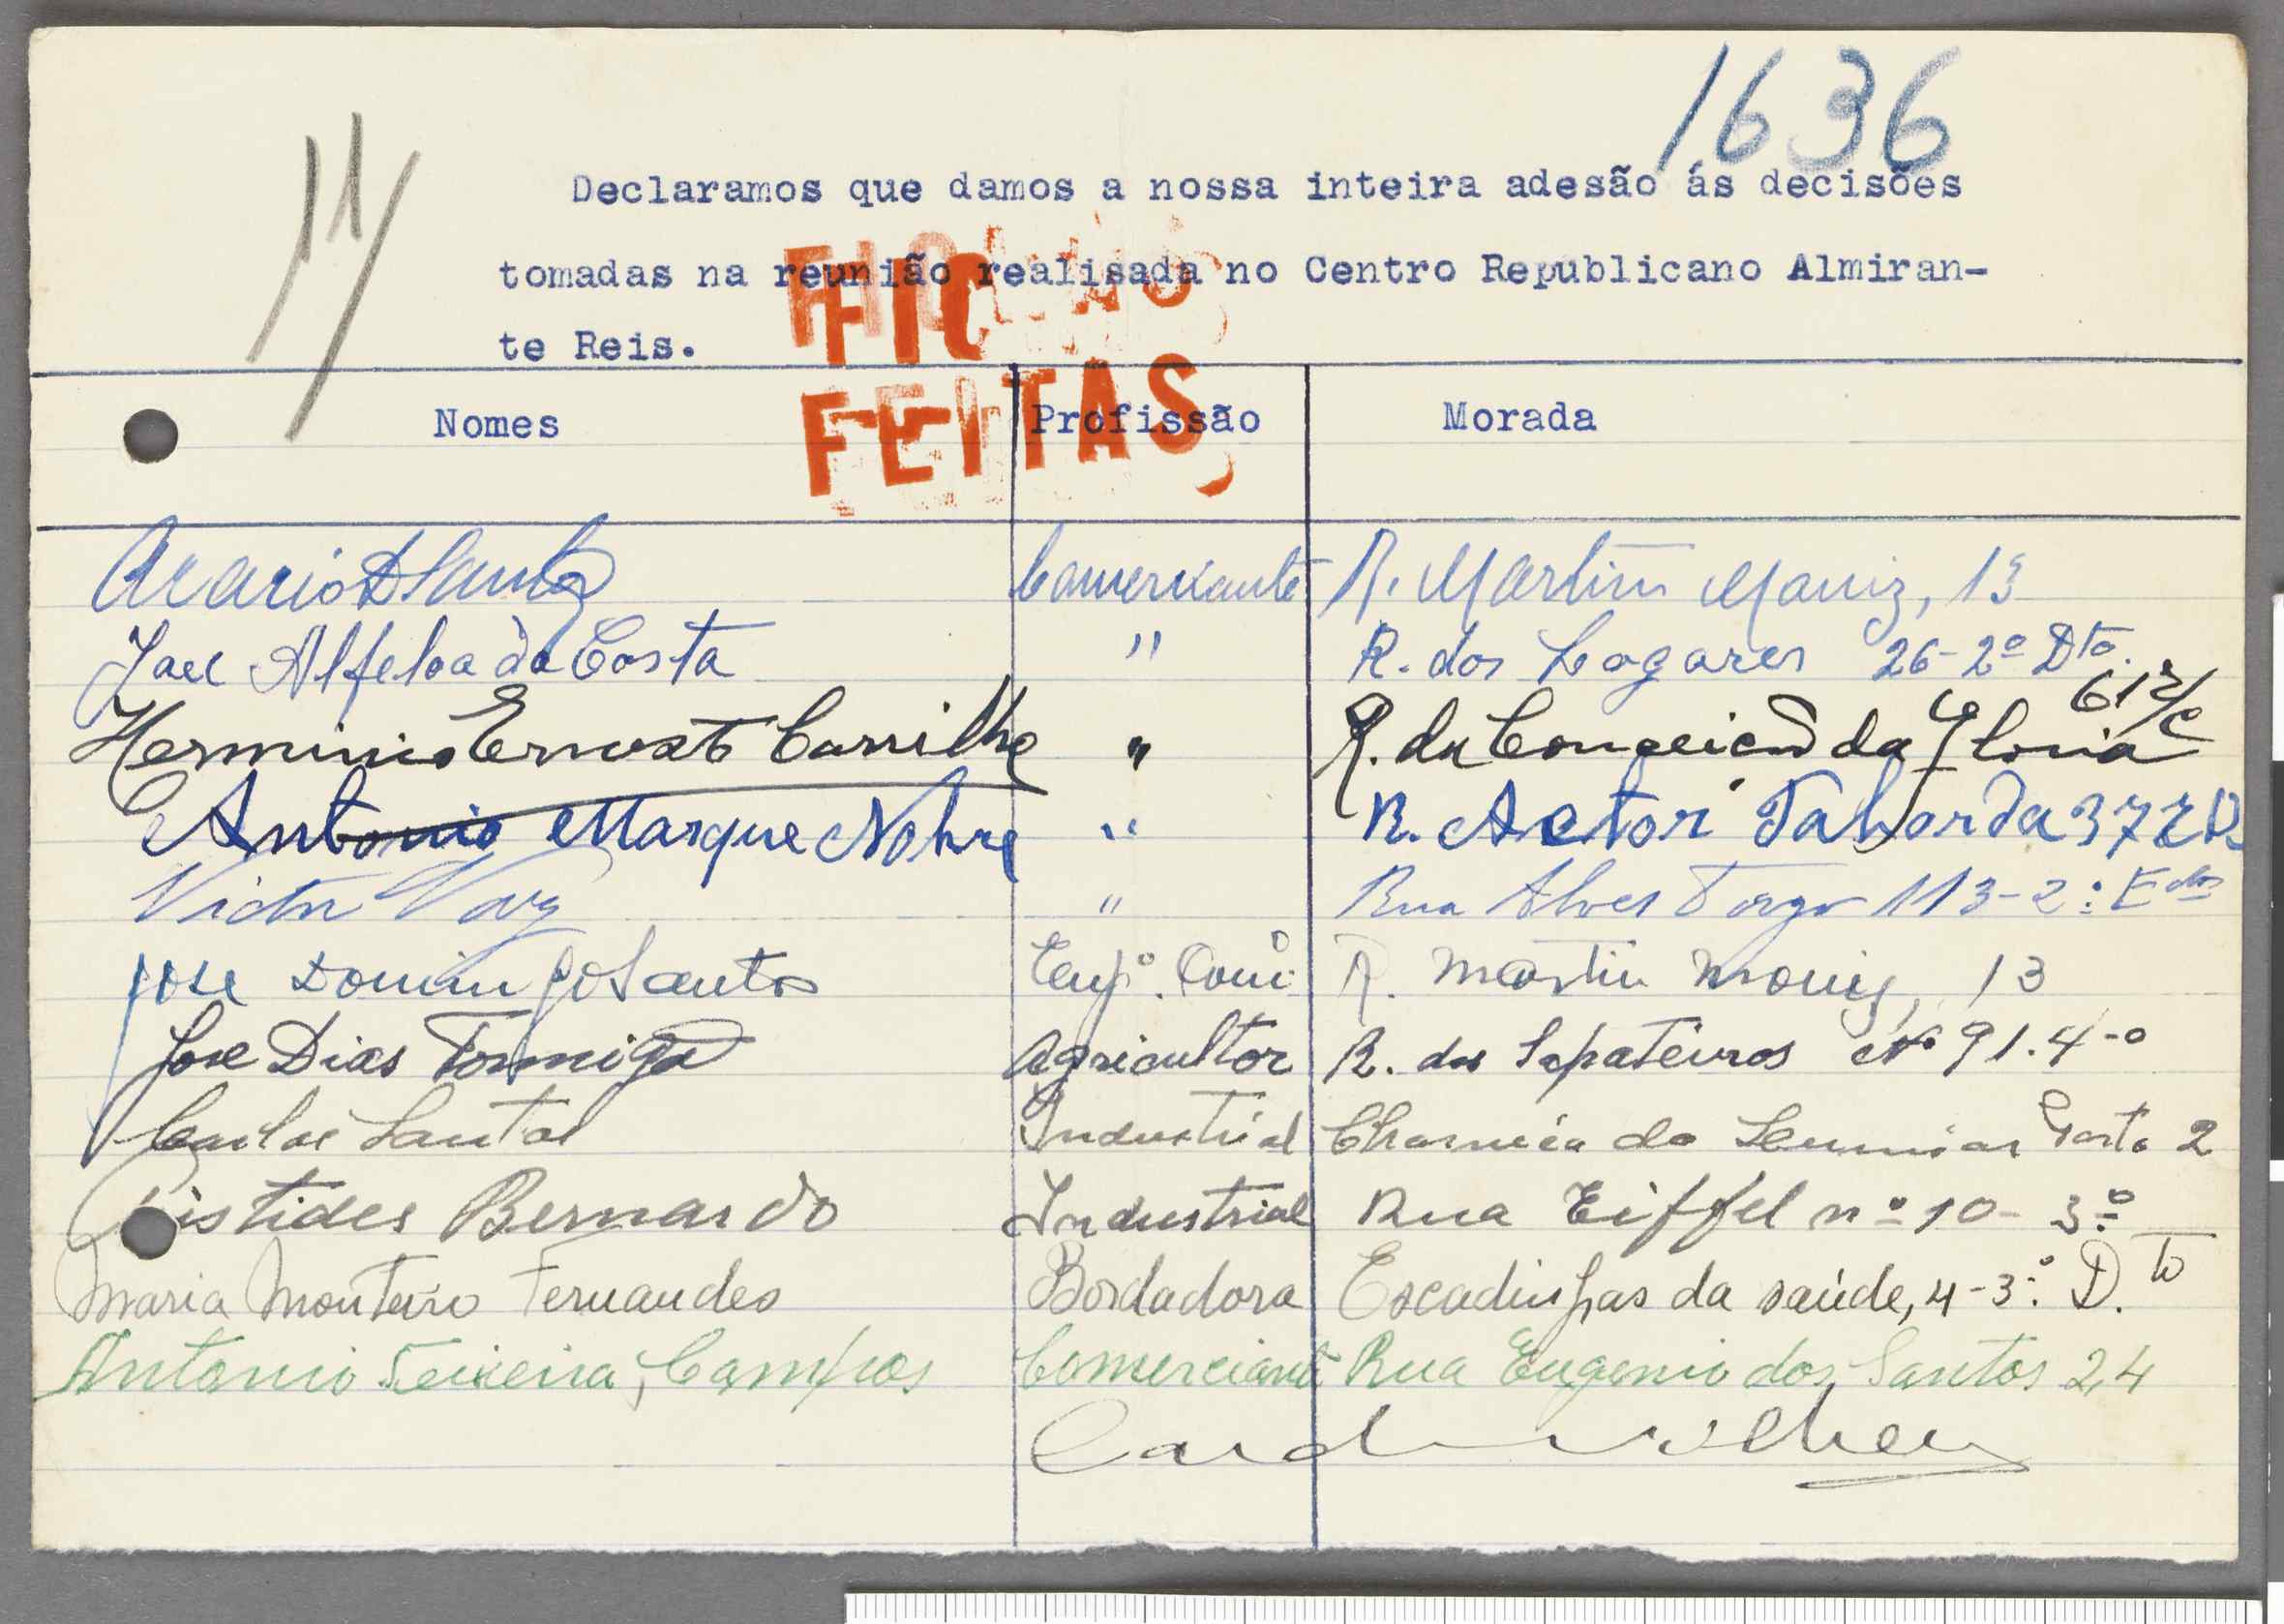 1636
11
Declaramos que damos a nossa inteira adesão ás decisões
tomadas na reunião realisada no Centro Republicano Almiran-
te Reis.
FEITAS
Nomes Profissão Morada
R. Martim Moniz, 13
Costa " R. dos Lagares 26-2º Dto.
61 r/c
Herminio Ernesto Carrilho " R. da Conceição da Gloria
Antonio Marque Nobre " R. Actor Taborda 37
Victor Vaz " Rua Alves Torgo 113-2º
José Domingos Santos R. Martim Moniz, 13
José Dias Formiga Agricultor R. dos Sapateiros Nº 91.4-o
Carlos Santos Industrial Charneca do Lumiar Porta 2
istides Bernardo Industrial Rua Eiffel nº 10- 3º
Maria Monteiro Fernandes Bordadora Escadinhas da saúde, 4-3º D.to
Antonio Teixeira Campos Comerciant Rua Eugenio dos Santos 24